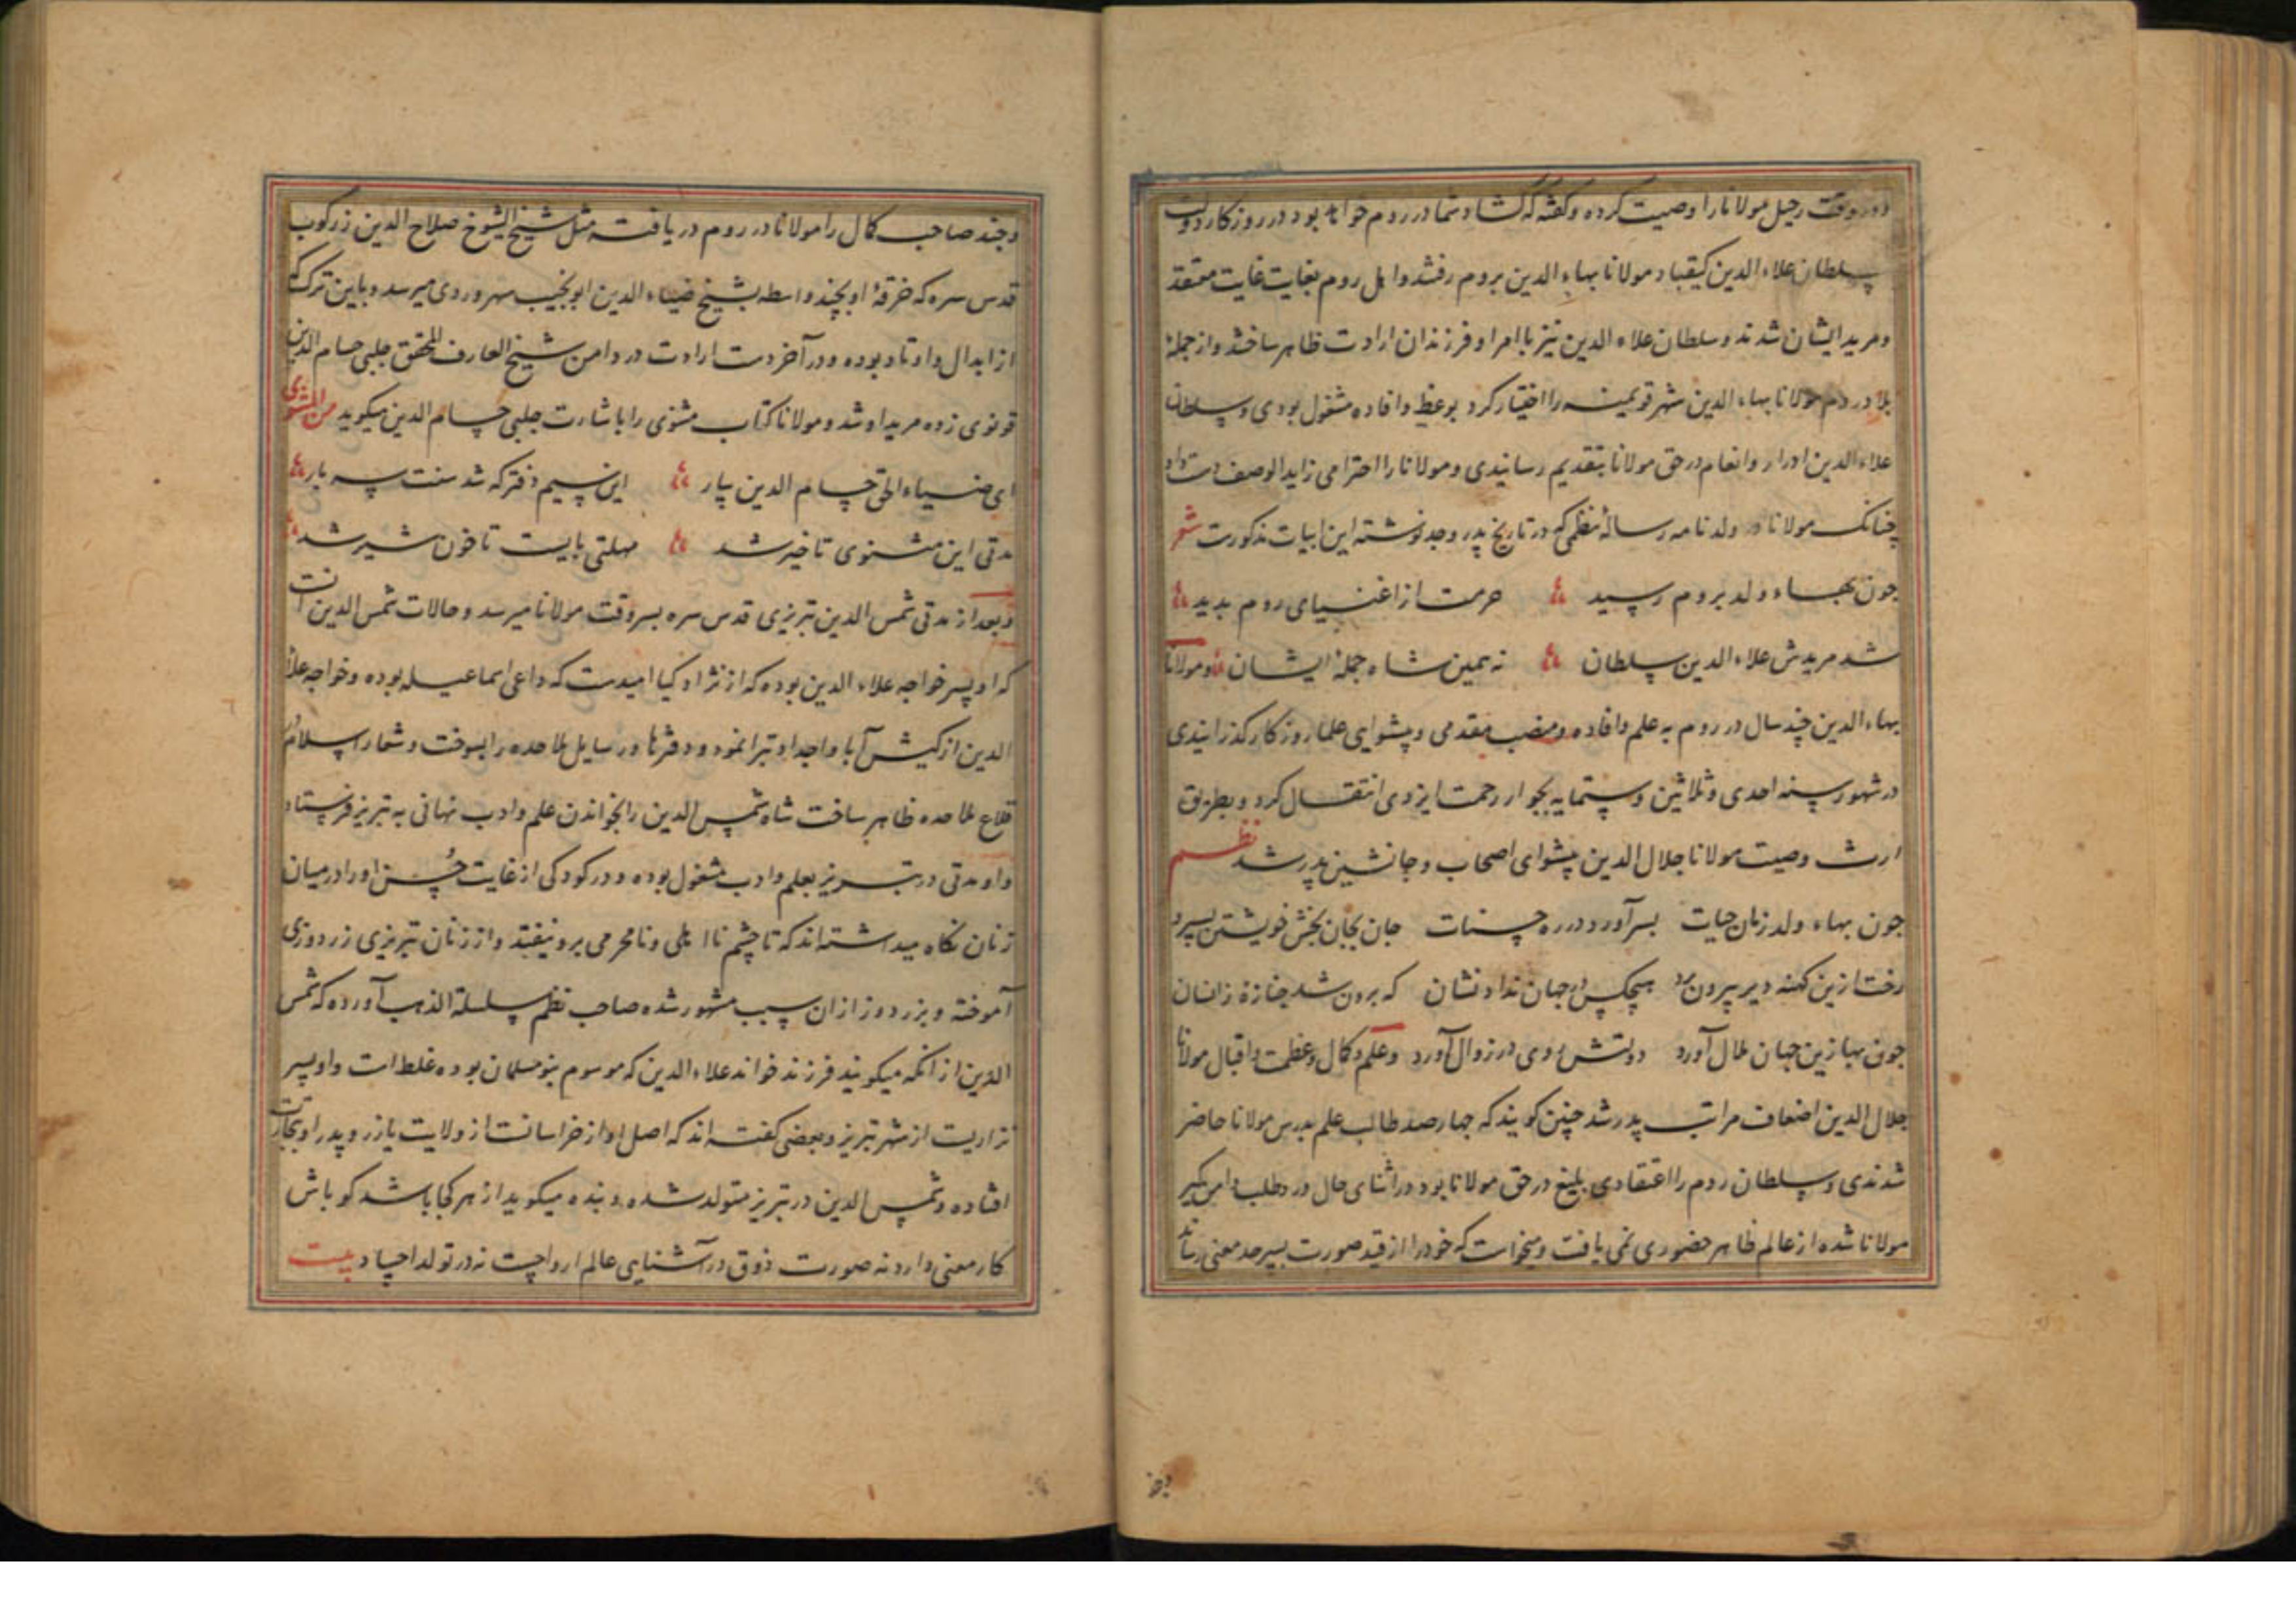 در وقت رحیل مولانا را وصیت کرده و گفته که گشاد شما در روم خواهد بود در روزکار دولت
سلطان علاء الدین کیقباد مولانا بهاء الدین بروم رفتند و اهل روم بغایت غایت معتقد
و مرید ایشان شدند و سلطان علاء الدین نیز با امرا و فرزندان ارادت ظاهر ساختند و از جمله
بلاد روم مولانا بهاء الدین شهر قونیه را اختیار کرد بوعظ و افاده مشغول بودی و سلطان
علاء الدین ادرار و انعام در حق مولانا بتقدیم رسانیدی و مولانا را احترامی زاید الوصف دست داد
چنانک مولانا در ولدنامه رساله نظمی که در تاریخ پدر و جد نوشته این ابیات مذکورست شعر
جون بهاء ولد بروم رسید حرمت از اغنیای روم بدید
شد مریدش علاء الدین سلطان نه همین شاه جمله ایشان و مولانا
بهاء الدین چند سال در روم به علم و افاده و منصب مقدمی و پیشوایی علما روزکار کذرانیدی
در شهور سنه احدی و ثلاثین و ستمایه بجوار رحمت ایزدی انتقال کرد و بطریق
ارث وصیت مولانا جلال الدین پیشوای اصحاب و جانشین پدر شد نظم
جون بهاء ولد زمان حیات بسر آورد در ره حسنات جان بجان بخش خویشتن بسپرد
رخت ازین کهنه دیر بیرون برد هیچکس در جهان نداد نشان که برون شد جنازهٔ زانسان
جون بها زین جهان ملال آورد دولتش روی در زوال آورد و علم و کمال و عظمت و اقبال مولانا
جلال الدین اضعاف مراتب پدر شد چنین کویند که چهارصد طالب علم بدرس مولانا حاضر
شدندی و سلطان روم را اعتقادی بلیغ در حق مولانا بود در اثنای حال درد طلب دامن کیر
مولانا شده از عالم ظاهر حضوری نمی یافت و میخواست که خود را از قید صورت بسرحد معنی رساند
و چند صاحب کمال را مولانا در روم دریافته مثل شیخ الشیوخ صلاح الدین زرکوب
قدس سره که خرقهٔ او بچند واسطه بشیخ ضیاء الدین ابو نجیب سهروردی میرسد و باین ترک که
از ابدال و اوتاد بوده و در آخر دست ارادت در دامن شیخ العارف المحقق جلبی حسام الدین
قونوی زده مرید او شد و مولانا کتاب مثنوی را باشارت جلبی حسام الدین میکوید من المثنوی
ای ضیاء الحق حسام الدین بیار این سیم دفتر که شد سنت سه بار
مدتی این مثنوی تاخیر شد مهلتی بایست تا خون شیر شد
و بعد از مدتی شمس الدین تبریزی قدس سره بسر وقت مولانا میرسد و حالات شمس الدین آنست
که او پسر خواجه علاء الدین بوده که از نژاد کیا امیدست که داعی اسماعیلیه بوده و خواجه علاء
الدین از کیش آبا و اجداد تبرا نمود و دفترها و رسایل ملاحده را بسوخت و شعار اسلام در
قلاع ملاحده ظاهر ساخت شاه شمس الدین را بخواندن علم و ادب نهانی به تبریز فرستاد
و او مدتی در تبریز بعلم و ادب مشغول بوده و در کودکی از غایت حُسن او را در میان
زنان نکاه میداشته اند که تا چشم نا اهلی و نامحرمی برو نیفتد و از زنان تبریزی زردوزی
آموخته و بزردوز ازان سبب مشهور شده صاحب نظم سلسلة الذهب آورده که شمس
الدین از آنکه میکویند فرزند خواند علاء الدین که موسوم بنومسلمان بوده غلط است و او پسر
بزازیست از شهر تبریز و بعضی کفته اند که اصل او از خراسانست از ولایت بازر و پدر او بتجارت
افتاده و شمس الدین در تبریز متولد شده و بنده میکوید از هر کجا باشد کو باش
کار معنی دارد نه صورت ذوق در آشنایی عالم ارواحست نه در تولد اجساد بیت